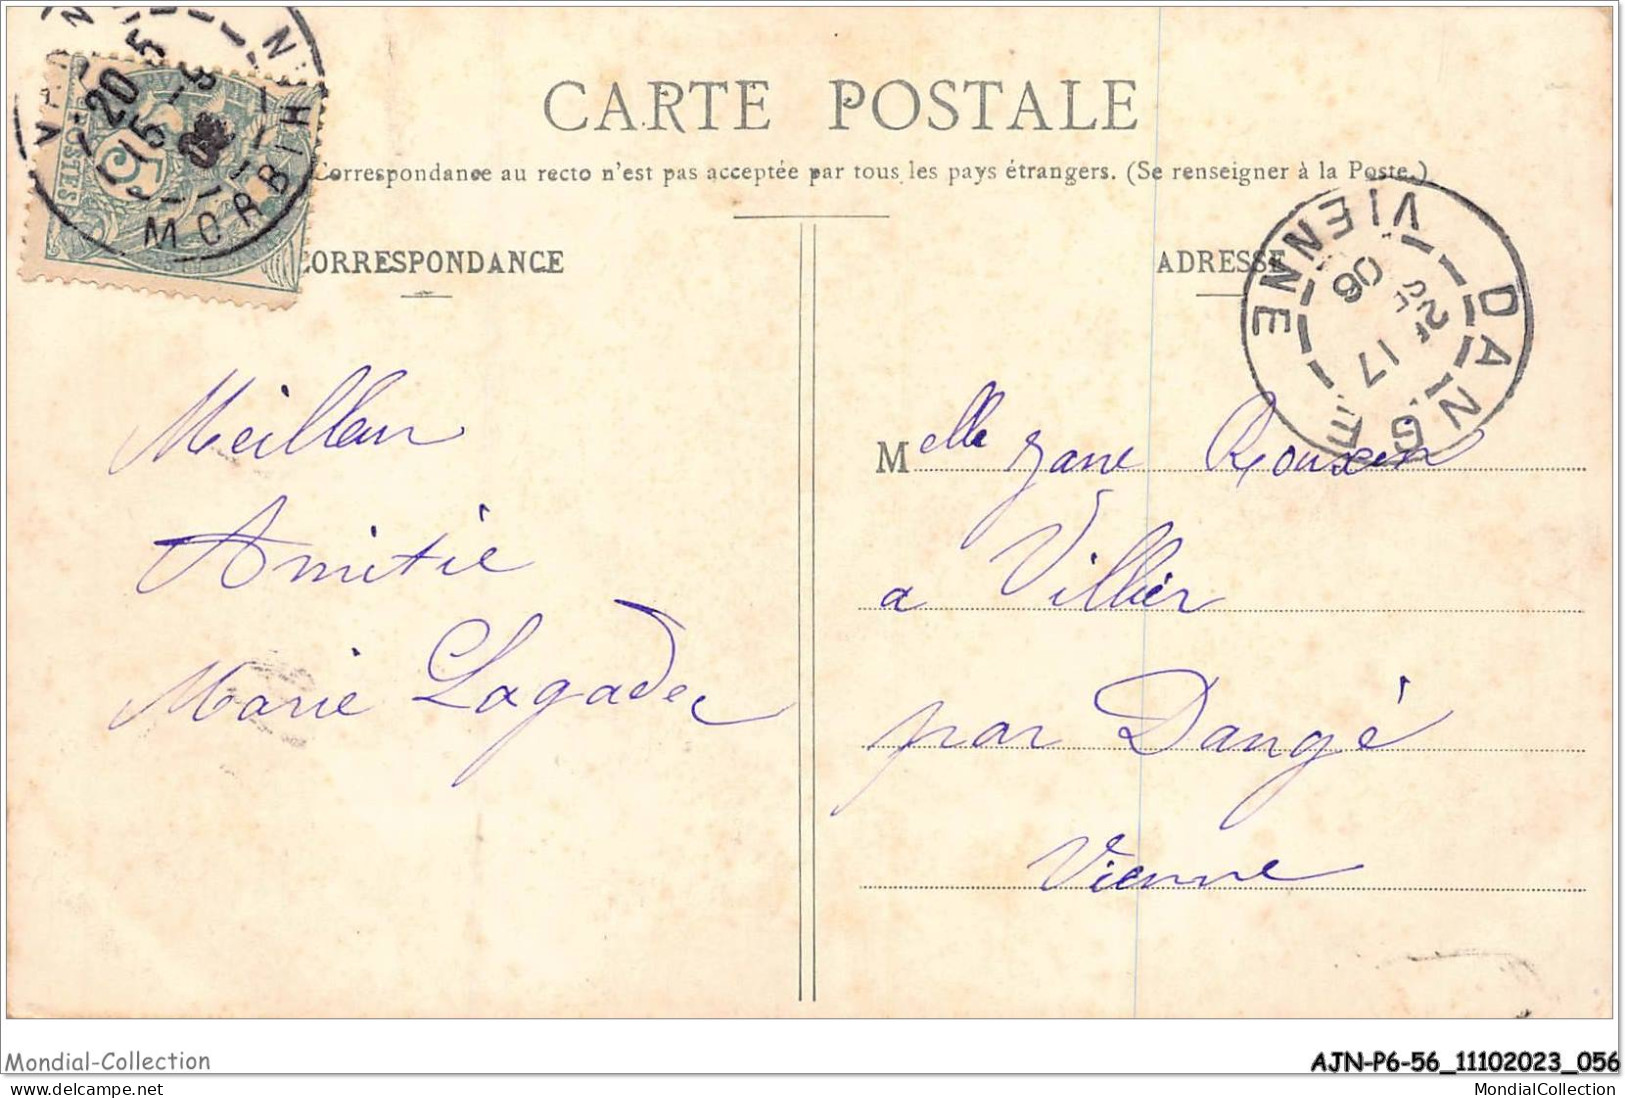 CARTE POSTALE
Correspondance au recto n'est pas acceptée par tous les pays étrangers. (Se renseigner à la Poste.)
CORRESPONDANCE
ADRESSE
MORBIHAN
20
15
5
POSTES
DANGE
VIENNE
2E 17
SE
06
Meilleur
Amitié
Marie Lagadec
Melle Jane Rouxin
a Villier
par Dangé
Vienne
Mondial-Collection
AJN-P6-56_11102023_056
delcampe.net
MondialCollection